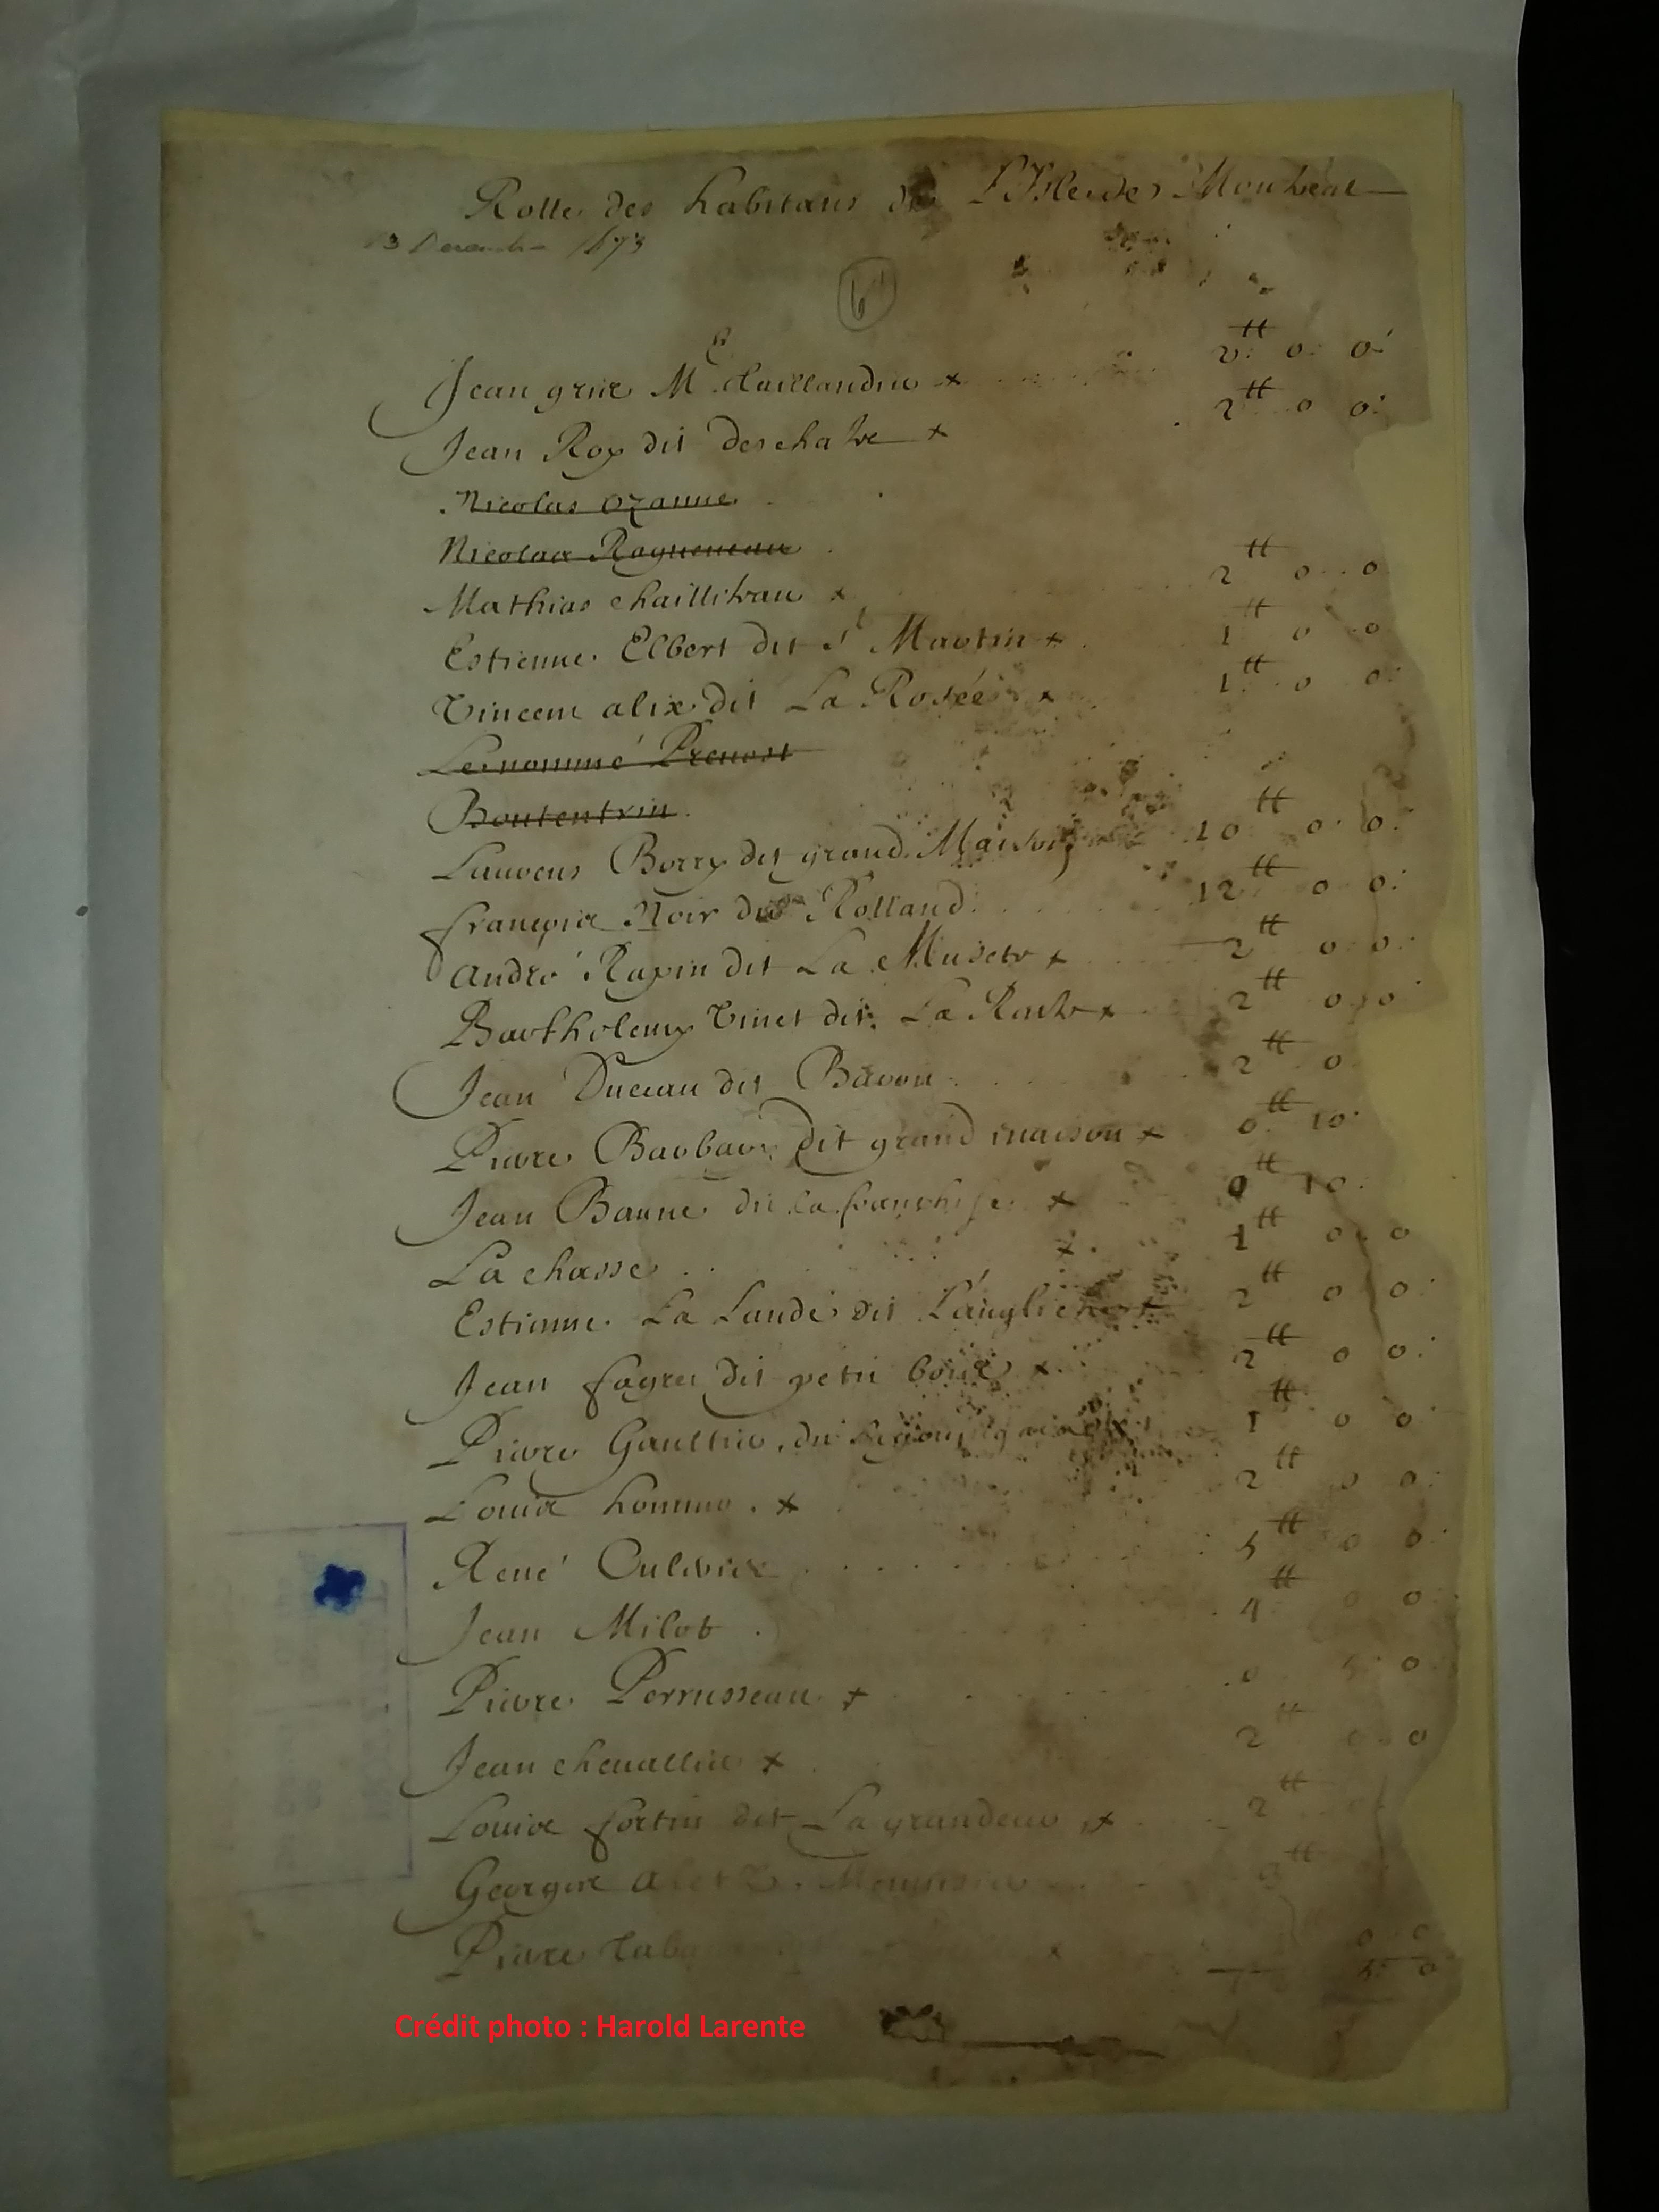 Rolle des habitans de L'Isle de Montreal
3 Decembre 1673
6
Jean gruc Me Taillandier x 2tt: 0: 0:
Jean Roy dit deschatre x 2tt 0 0:
Nicolas Ozanne
Nicolas Ragueneau
Mathias chaillitrau x 2tt 0 0
Estienne Elbert dit St Martin x 1tt 0 0
Vincent alix dit La Rosée x 1tt 0 0:
Le nommé Prevost
Boutentrin
Laurens Borry dit grand Maison 10tt 0 0:
françois Noir dit Rolland 12tt 0 0:
André Rapin dit La Musete x 2tt 0 0:
Barthelemy Vinet dit La Roche x 2tt 0 0:
Jean Duceau dit Baron 2tt 0
Pierre Barbary dit grand maison x 0tt 10:
Jean Baune dit la franchise x 0tt 10:
La chasse x 1tt 0 0
Estienne La Lande dit L'anglicheur 2tt 0 0:
Jean fagret dit petit bois x 2tt 0 0:
Pierre Gaultier dit 1tt 0 0
Louis homme x 2tt 0 0:
René Culerier 5tt 0 0:
Jean Milot 4tt 0 0
Pierre Perrusseau x 0 5: 0
Jean chevallier x 2tt 0 0
Louis fortin dit La grandeur x 2tt
George Menuisier
Pierre x
Crédit photo : Harold Larente